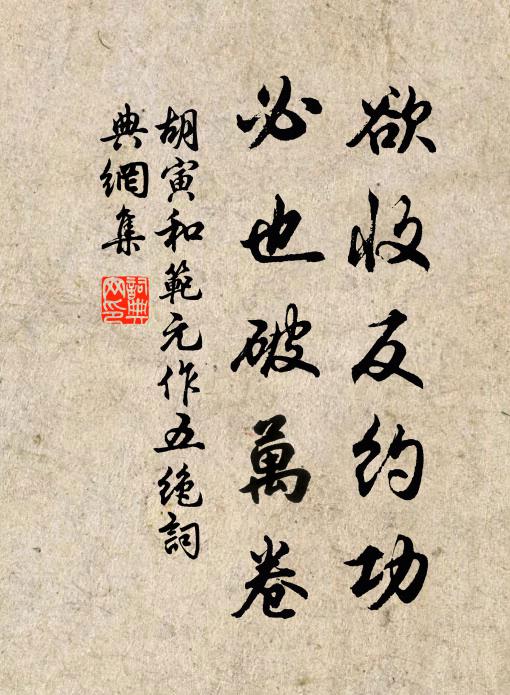 欲收反約功
必也破萬卷
胡寅和範元作五绝詞
典網集
詞典網印